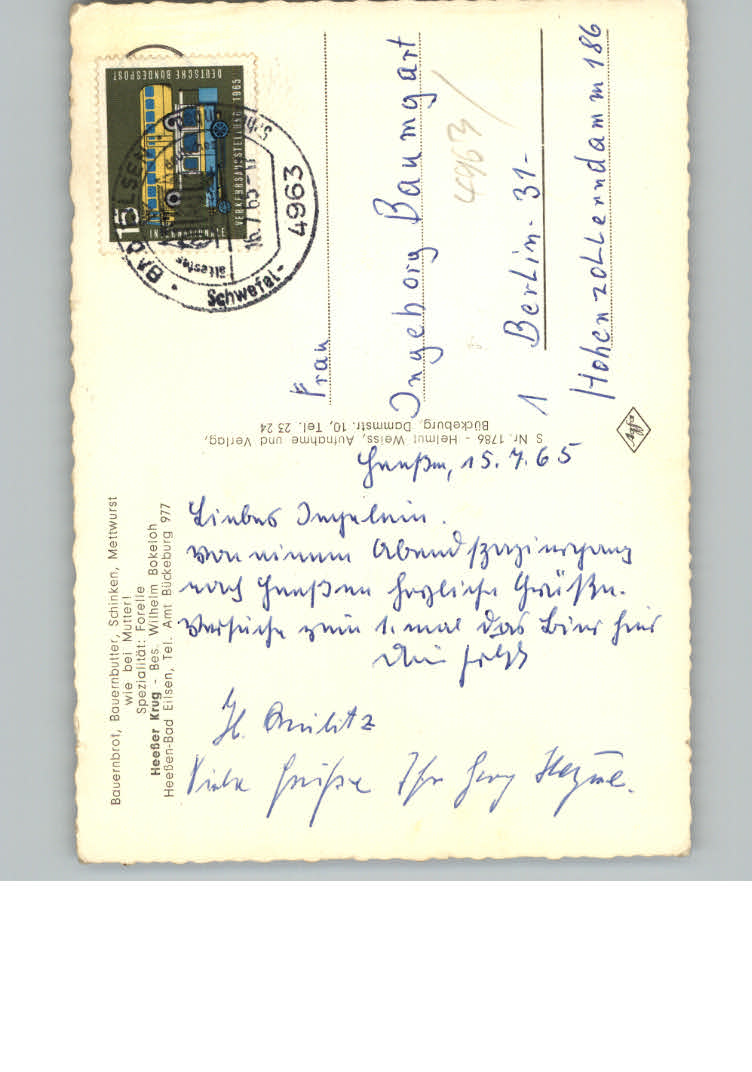 Bauernbrot, Bauernbutter, Schinken, Mettwurst
wie bei Mutter!
Spezialität: Forelle
Heeßer Krug - Bes. Wilhelm Bokeloh
Heeßen-Bad Eilsen, Tel. Amt Bückeburg 977
Heeßen, 15.7.65
Liebes Ingelein.
Von einem Abendspaziergang
nach Heeßen herzliche Grüße.
Versuche zum 1. mal das Bier hier
Dein
Viele Grüße Ihr
S Nr. 1786 - Helmut Weiss, Aufnahme und Verlag,
Bückeburg, Dammstr. 10, Tel. 23 24
DEUTSCHE BUNDESPOST
VERKEHRSAUSSTELLUNG 1965
15
BAD EILSEN
Schwefel-
16.7.65
4963
Frau
Ingeborg Baumgart
4963/
1 Berlin-31-
Hohenzollerndamm 186